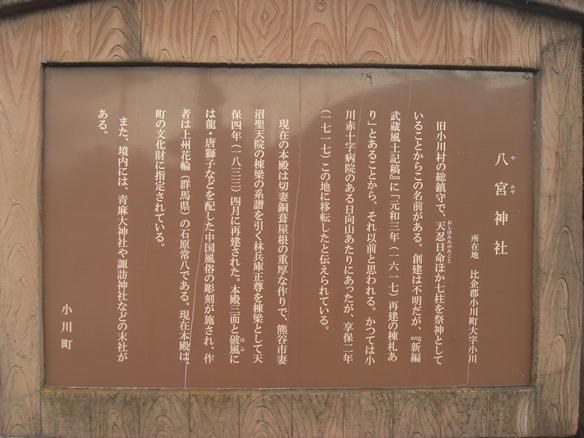 八宮神社
や みや
所在地 比企郡小川町大字小川
旧小川村の総鎮守で、天忍日命ほか七柱を祭神として
おしほみみのみこと
いることからこの名前がある。創建は不明だが、『新編
武蔵風土記稿』に「元和三年(一六一七)再建の棟札あ
り」とあることから、それ以前と思われる。かつては小
川赤十字病院のある日向山あたりにあったが、享保二年
(一七一七)この地に移転したと伝えられている。
現在の本殿は切妻銅葺屋根の重厚な作りで、熊谷市妻
沼聖天院の棟梁の系譜を引く林兵庫正尊を棟梁として天
保四年(一八三三)四月に再建された。本殿三面と破風に
はふ
は龍・唐獅子などを配した中国風俗の彫刻が施され、作
者は上州花輪(群馬県)の石原常八である。現在本殿は、
町の文化財に指定されている。
また、境内には、青麻大神社や諏訪神社などの末社が
ある。
小川町